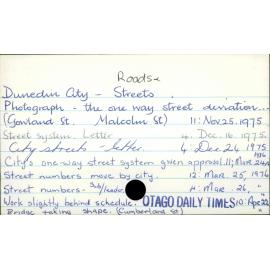 Roads
Dunedin City - Streets.
Photograph - the one way street deviation...
(Gowland St. Malcolm St) 11: Nov. 25. 1975
Street system. Letter 4. Dec. 16. 1975.
City streets - letter. 4: Dec 24 1975
City's one-way street system given approval. 11; Mar. 24, 1976
Street numbers move by city. 12: Mar. 25, 1976
Street numbers - Sub/leader. 4: Mar. 26, "
Work slightly behind schedule. OTAGO DAILY TIMES 10: Apr. 22 "
Bridge taking shape. (Cumberland St) "